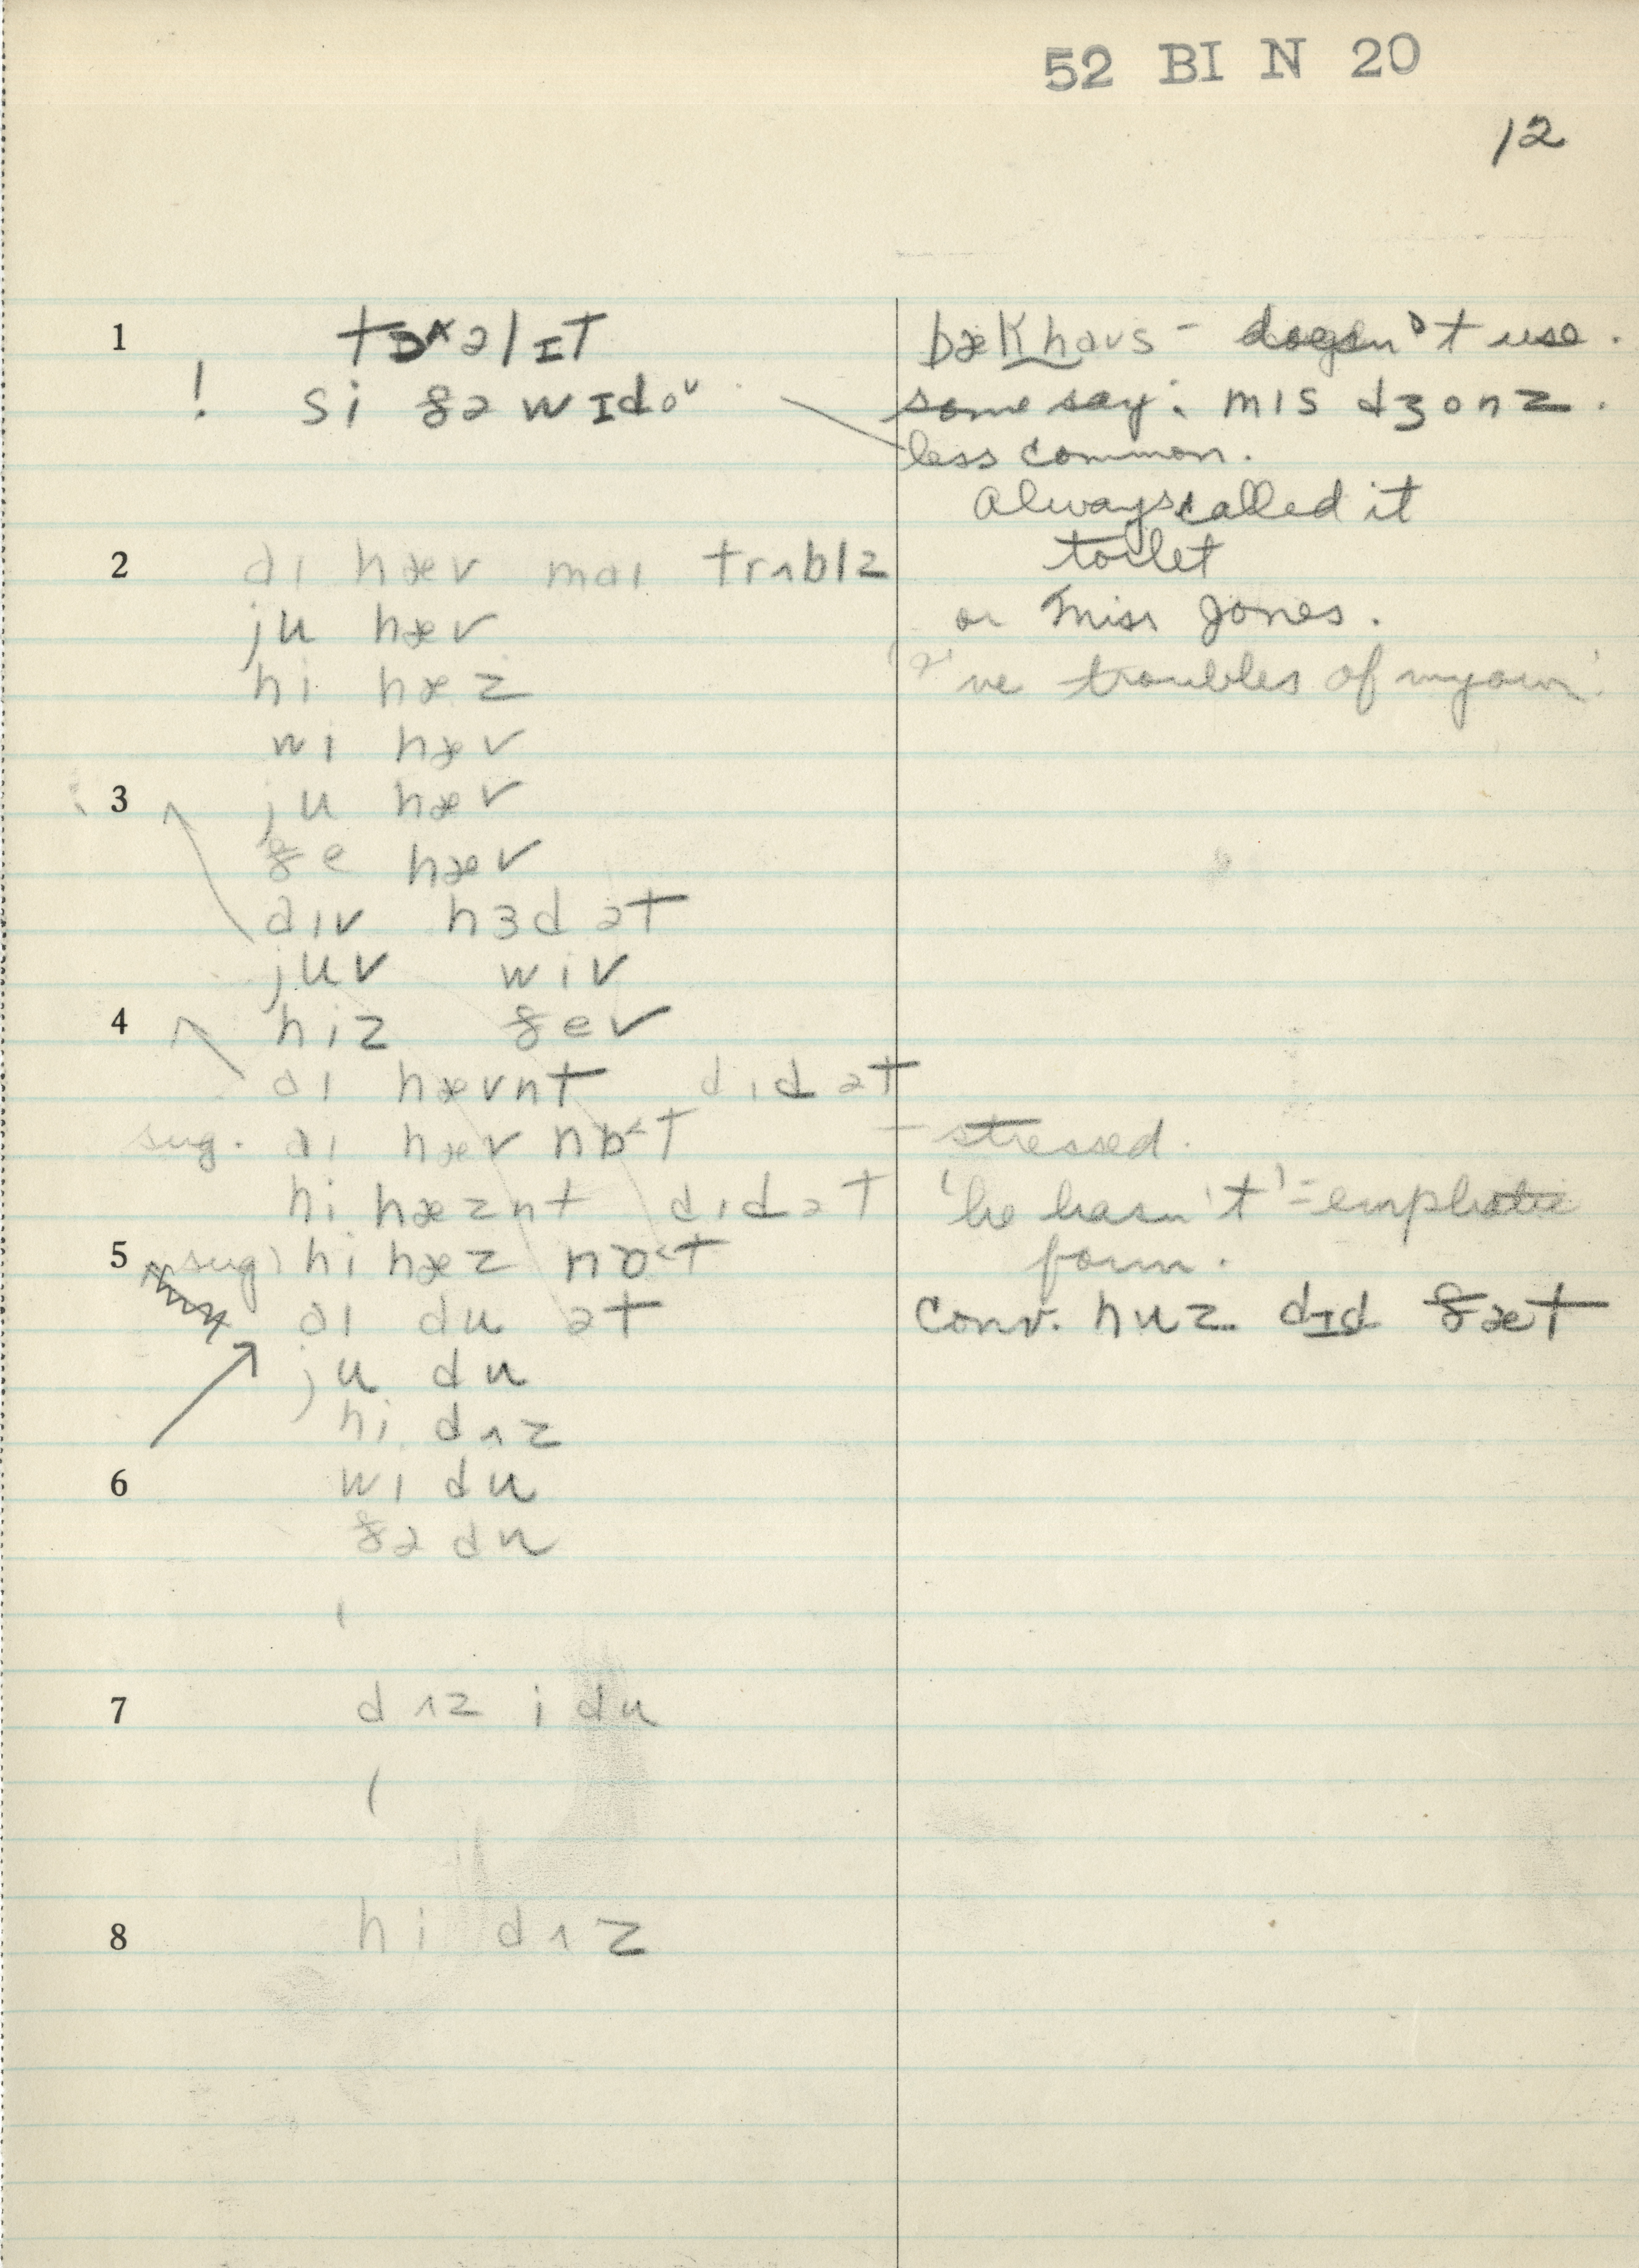 52 BI N 20
12
1 tɔ^əlɪt bækhaus - doesn't use.
! si ðə wɪdoᵛ some say: mis dʒonz.
less common.
Always called it
2 aɪ hæv maɪ trʌblz toilet
ju hæv or Miss Jones.
hi hæz 'I've troubles of my own'
wi hæv
3 ju hæv
ðe hæv
aɪv hɜd ət
juv wiv
4 hiz ðev
aɪ hævnt dɪd ət
sug. aɪ hæv nɒ<t - stressed.
hi hæznt dɪd ət 'he hasn't' = emphatic
5 sug) hi hæz nɒ<t form.
aɪ du ət conv. huz dɪd ðæt
ju du
hi dʌz
6 wi du
ðə du
7 dʌz i du
(
8 hi dʌz